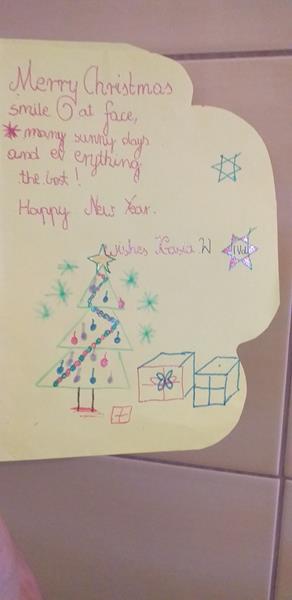 Merry Christmas
smile at face,
many sunny days
and everything
the best!
Happy New Year.
wishes Kasia W